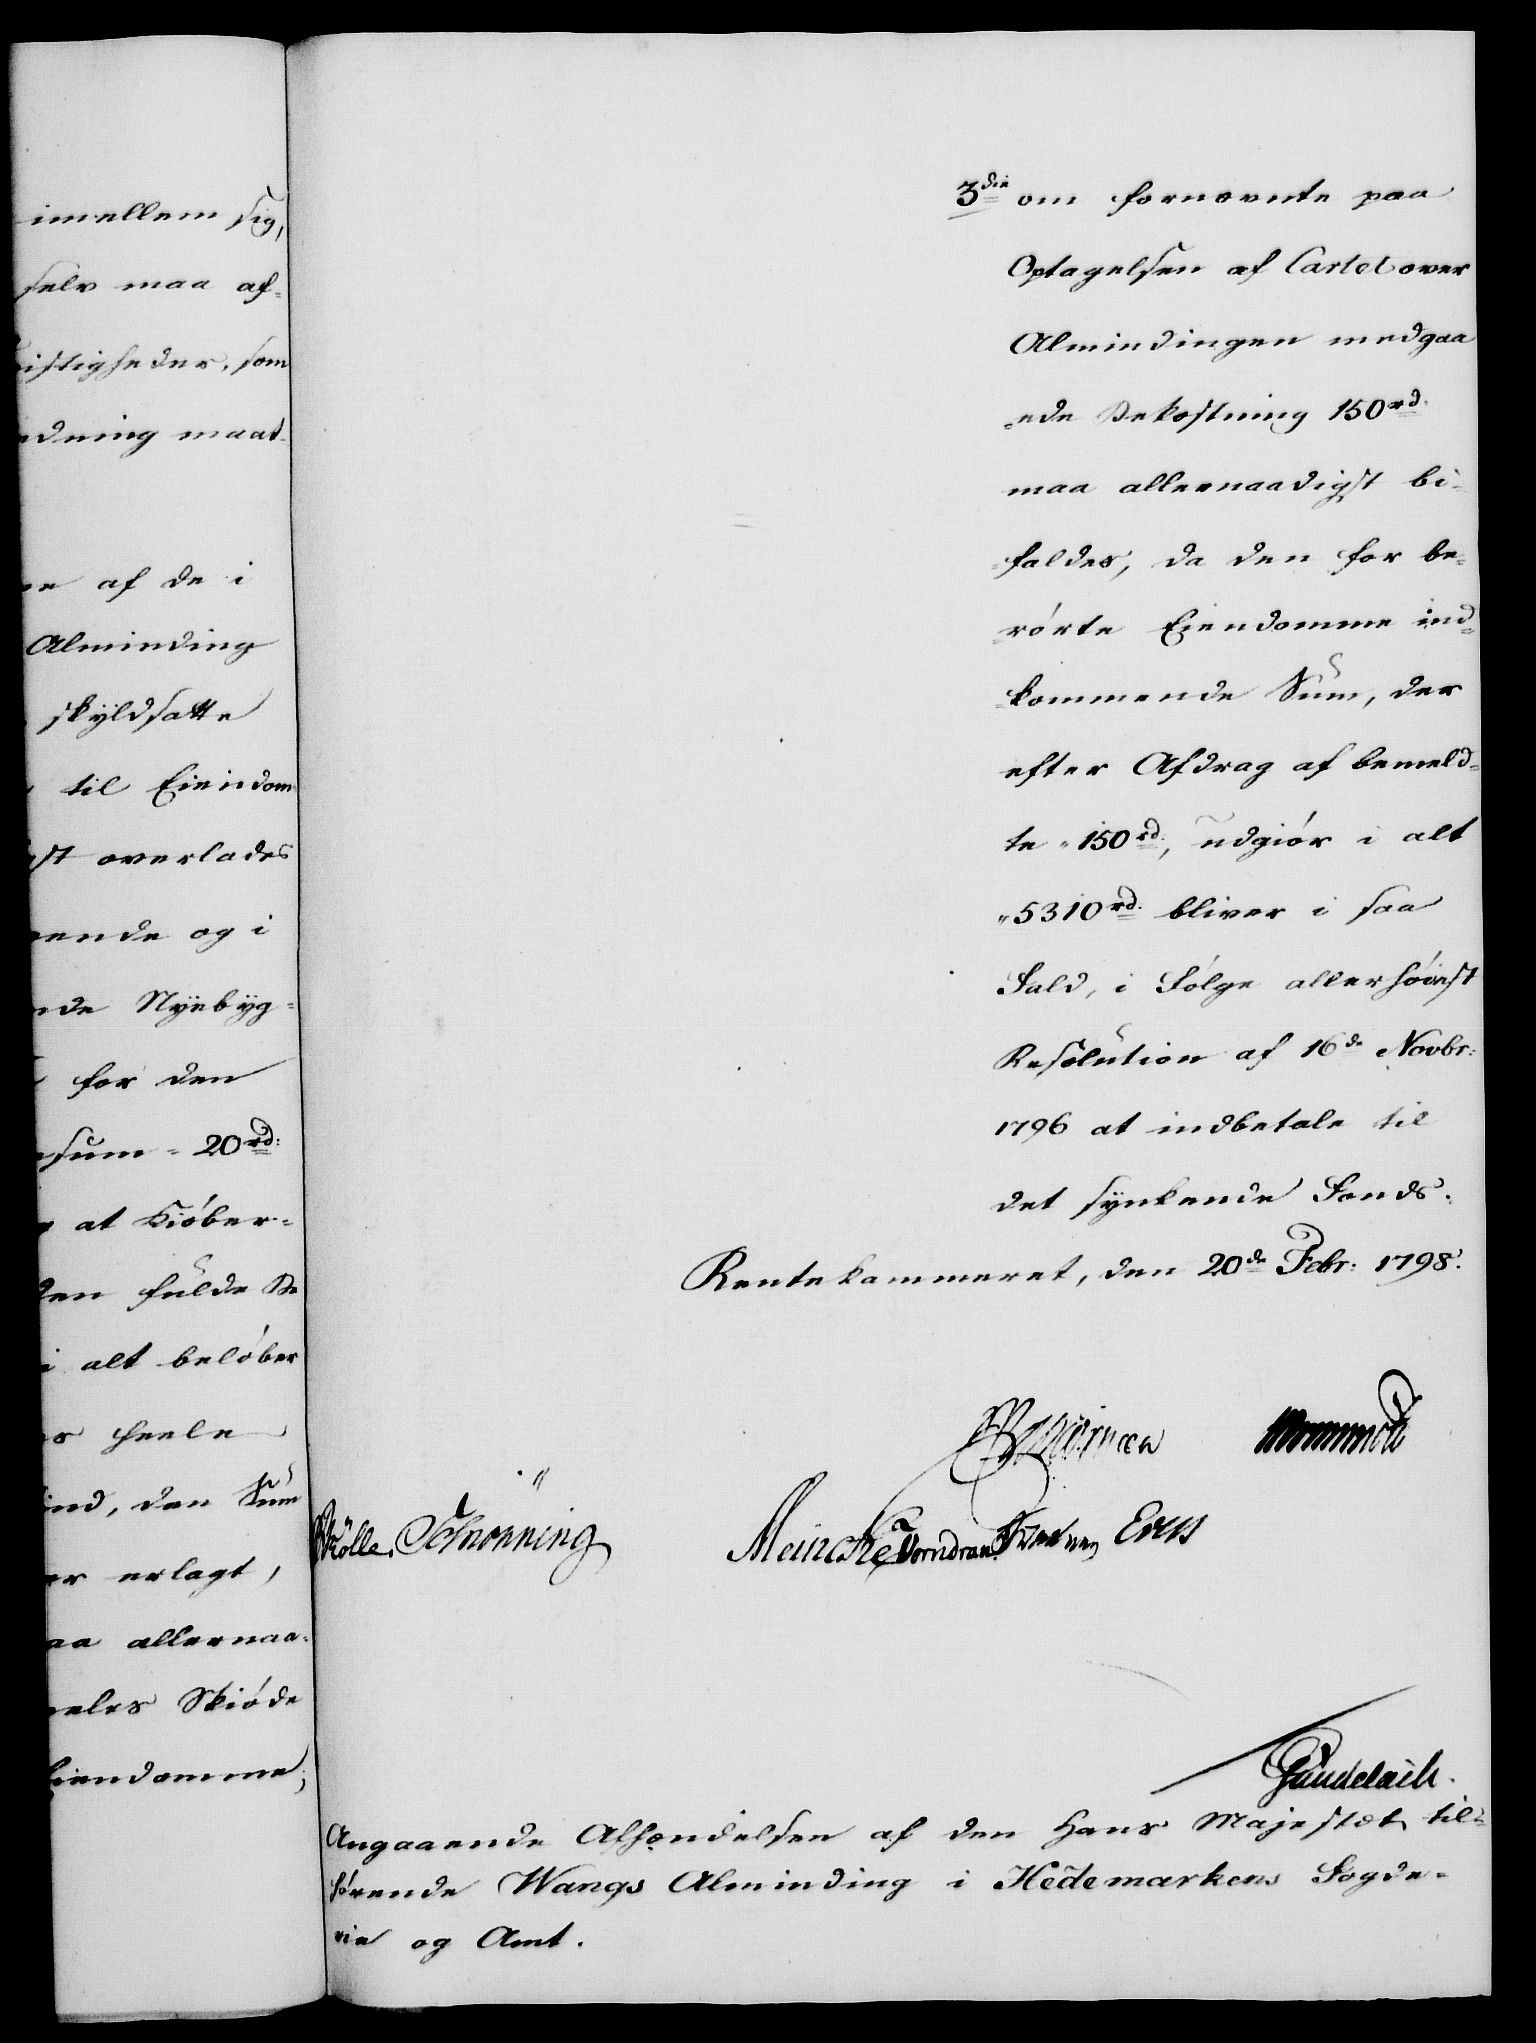 imellem sig,
selv maa af-
istigheder, som
dning maat-
af de i
Alminding
skyldsatte
til Eiendom
overlades
ende og i
Nyebyg-
for den
sum - 20 rd:
at Kiøber-
den fulde Be
i alt beløber
heele
ind, den Sum
er erlagt,
allernaa-
Skiøde
Eiendomme;
3die om fornævnte paa
Optagelsen af Cartet over
Almindingen medgaa
-ede Bekostning 150 rd.
maa allernaadigst bi-
-faldes, da den for be-
-rørte Eiendomme ind-
-kommende Sum, der
efter Afdrag af bemeld-
te "150 rd., udgiør i alt
"5310 rd. bliver i saa
Fald, i Følge allerhøiest
Resolution af 16de Novbr:
1796 at indbetale til
det synkende Fonds.
Rentekammeret, den 20de Febr: 1798.
Schønning Meincke Vorndran
Gundelach.
Angaaende Afhændelsen af den Hans Majestæt til-
hørende Wangs Alminding i Hedemarkens Fogde-
rie og Amt.